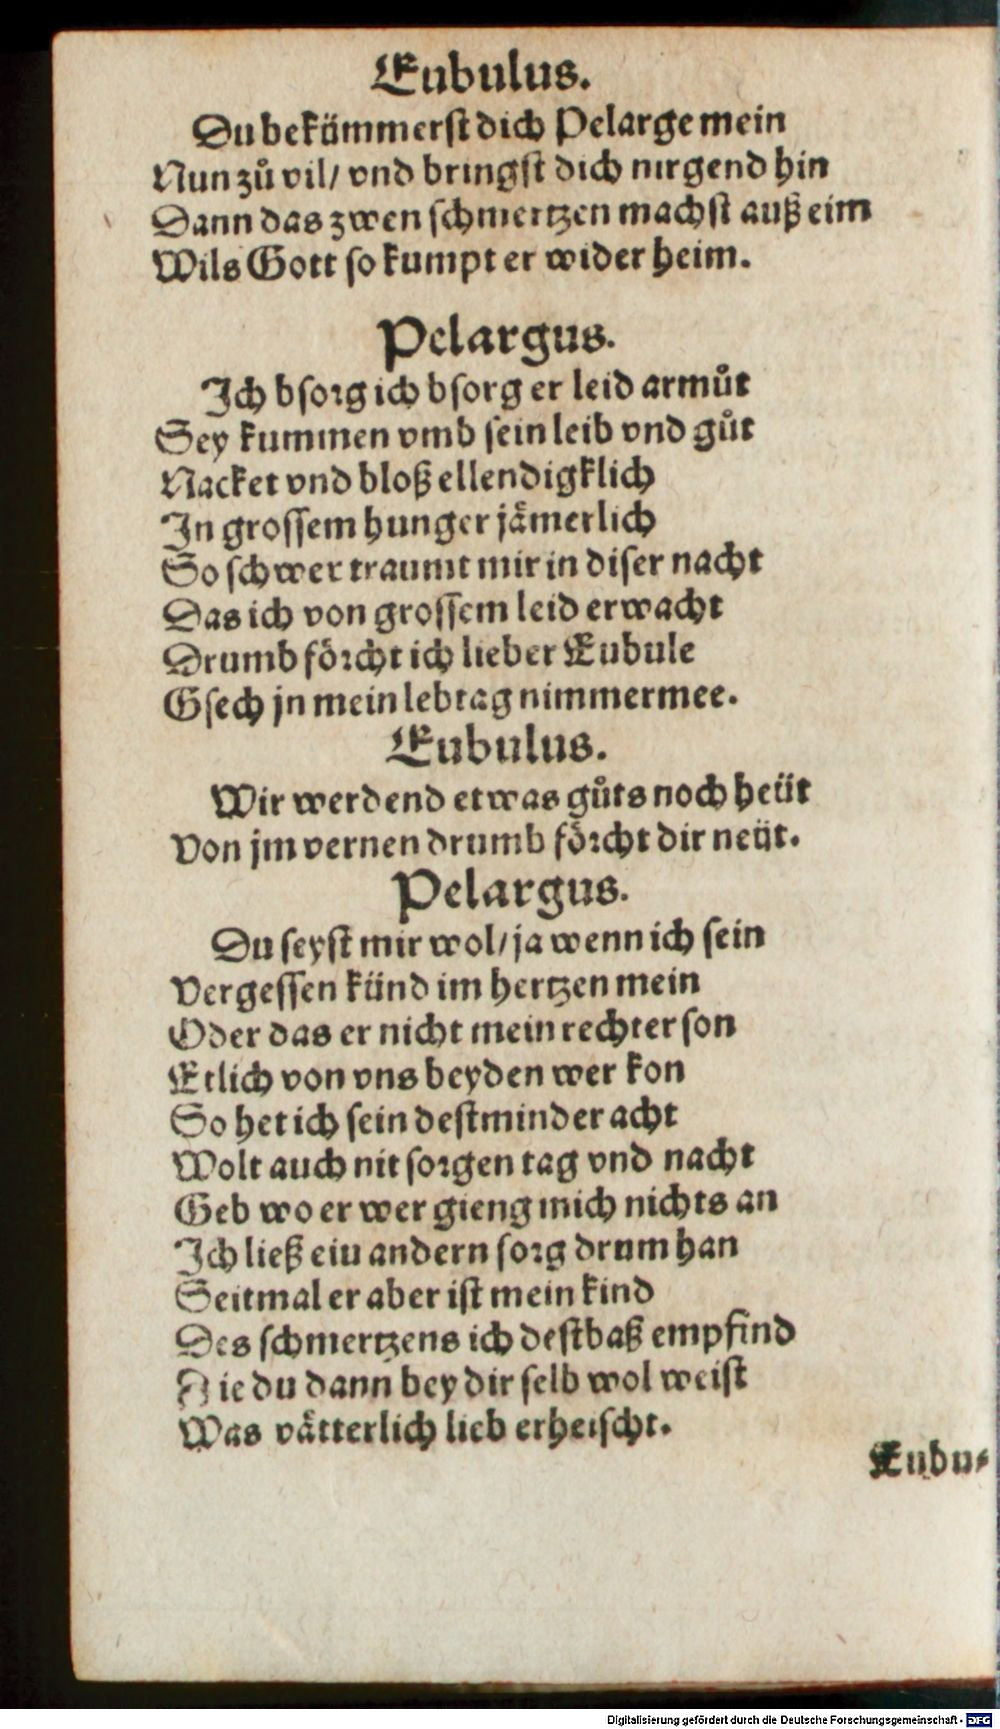 Eubulus.
Du bekümmerst dich Pelarge mein
Nun zů vil/ vnd bringst dich nirgend hin
Dann das zwen schmertzen machst auß eim
Wils Gott so kumpt er wider heim.
Pelargus.
Ich bsorg ich bsorg er leid armůt
Sey kummen vmb sein leib vnd gůt
Nacket vnd bloß ellendigklich
In grossem hunger jaͤmerlich
So schwer traumt mir in diser nacht
Das ich von grossem leid erwacht
Drumb foͤrcht ich lieber Eubule
Gsech jn mein lebtag nimmermee.
Eubulus.
Wir werdend etwas gůts noch heüt
Von jm vernen drumb foͤrcht dir neüt.
Pelargus.
Du seyst mir wol/ ja wenn ich sein
Vergessen künd im hertzen mein
Oder das er nicht mein rechter son
Etlich von vns beyden wer kon
So het ich sein destminder acht
Wolt auch nit sorgen tag vnd nacht
Geb wo er wer gieng mich nichts an
Ich ließ eiu andern sorg drum han
Seitmal er aber ist mein kind
Des schmertzens ich destbaß empfind
Die du dann bey dir selb wol weist
Was vaͤtterlich lieb erheischt.
Eubu⸗
Digitalisierung gefördert durch die Deutsche Forschungsgemeinschaft - DFG